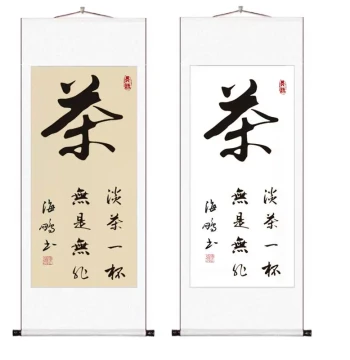 茶
淡茶一杯
無是無非
海鵬书
茶
淡茶一杯
無是無非
海鵬书